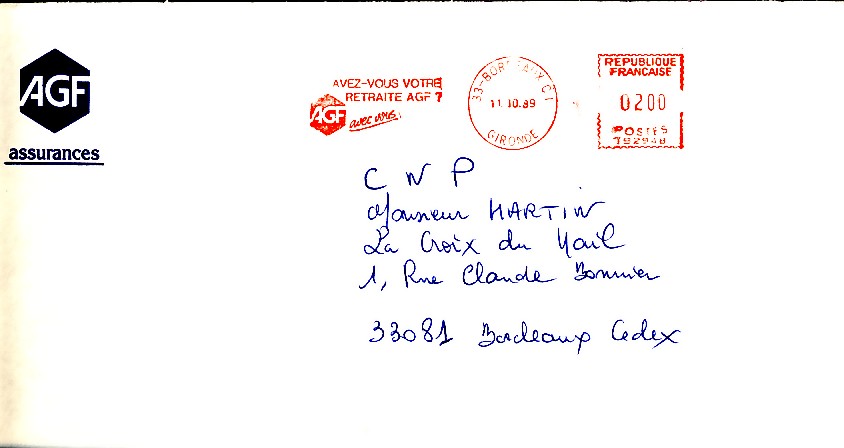 AGF
assurances
AVEZ-VOUS VOTRE
RETRAITE AGF ?
AGF avec vous.
33-BORDEAUX C T
11.10.89
GIRONDE
REPUBLIQUE
FRANCAISE
0200
POSTES
792948
C N P
Monsieur MARTIN
La Croix du Mail
1, Rue Claude Bonnier
33081 Bordeaux Cedex